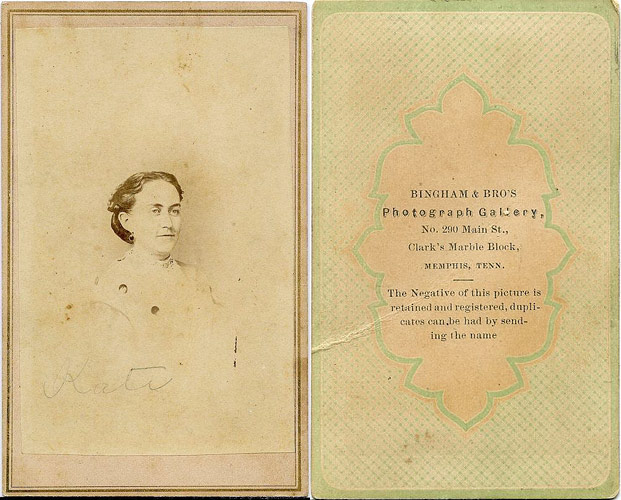 Kate
BINGHAM & BRO'S
Photograph Gallery,
No. 290 Main St.,
Clark's Marble Block,
MEMPHIS, TENN.
The Negative of this picture is
retained and registered, dupli-
cates can be had by send-
ing the name